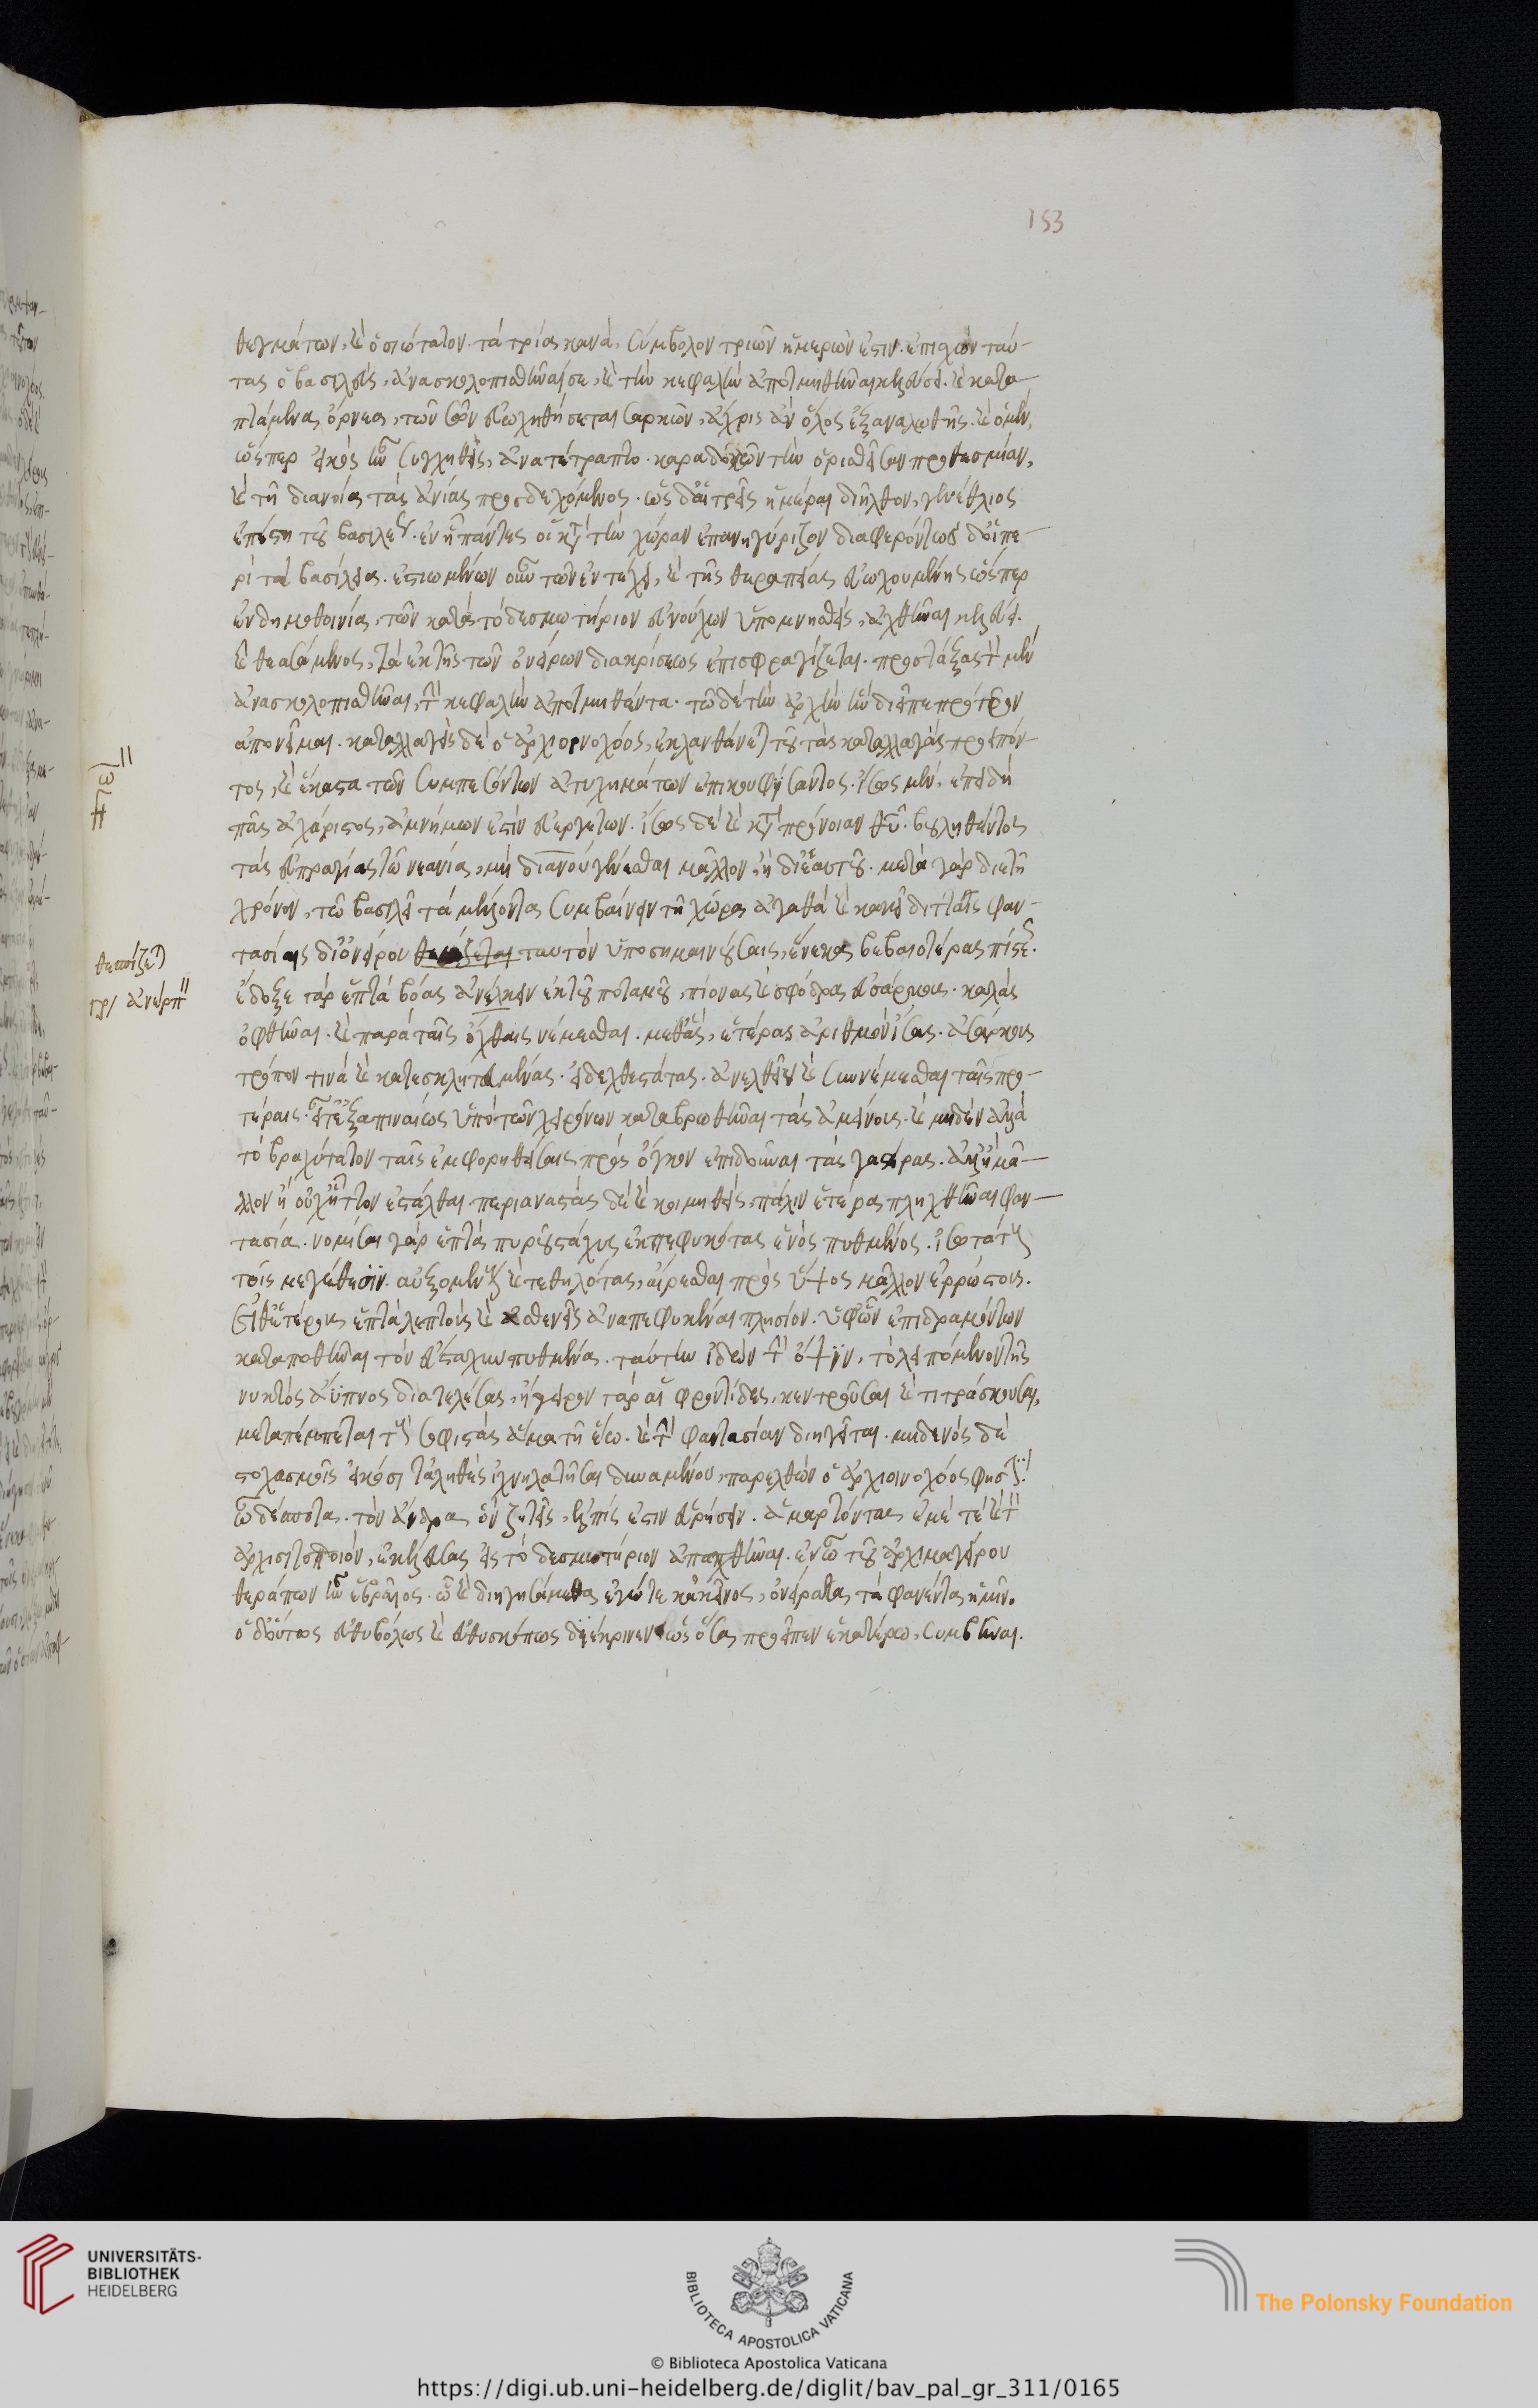 θεγμάτων, καὶ ὁσιώτατον. τὰ τρία κανᾶ, σύμβολον τριῶν ἡμερῶν ἐστιν. ἐπισχὼν ταύ-
τας ὁ βασιλεὺς, ἀνασκολοπισθῆναί σε, καὶ τὴν κεφαλὴν ἀποτμηθῆναι κελεύσει. καὶ κατα-
πτάμενα ὄρνεα, τῶν σῶν εὐωχηθήσεται σαρκῶν, ἄχρις ἂν ὅλος ἐξαναλωθῇς. καὶ ὁ μὲν,
ὥσπερ εἰκὸς ἦν συγχυθεὶς, ἀνατέτραπτο. καραδοκῶν τὴν ὁρισθεῖσαν προθεσμίαν,
καὶ τῇ διανοίᾳ τὰς ἀνίας προσδεχόμενος. ὡς δ' αἱ τρεῖς ἡμέραι διῆλθον, γενέθλιος
ἐπέστη τοῦ βασιλέως. ἐν ᾗ πάντες οἱ κατὰ τὴν χώραν ἐπανηγύριζον διαφερόντως δ' οἱ πε-
ρὶ τὰ βασίλεια. ἑστιωμένων οὖν τῶν ἐν τέλει, καὶ τῆς θεραπείας εὐωχουμένης ὥσπερ
ἐν δημοθοινίᾳ, τῶν κατὰ τὸ δεσμωτήριον εὐνούχων ὑπομνησθεὶς, ἀχθῆναι κελεύει.
καὶ θεασάμενος, τὰ ἐκ τῆς τῶν ὀνείρων διακρίσεως ἐπισφραγίζεται. προστάξας τὸν μὲν
ἀνασκολοπισθῆναι, τὴν κεφαλὴν ἀποτμηθέντα. τῷ δὲ τὴν ἀρχὴν ἣν διεῖπε πρότερον
ἀπονεῖμαι. καταλλαγεὶς δὲ ὁ ἀρχιοινοχόος, ἐκλανθάνεται τοῦ τὰς καταλλαγὰς προειπόν-
τος, καὶ ἕκαστα τῶν συμπεσόντων ἀτυχημάτων ἐπικουφίσαντος. ἴσως μὲν, ἐπειδὴ
πᾶς ἀχάριστος, ἀμνήμων ἐστὶν εὐεργετῶν. ἴσως δὲ καὶ κατὰ πρόνοιαν θεοῦ. βουληθέντος
τὰς εὐπραγίας τῷ νεανίᾳ, μὴ δι' ἀνου γενέσθαι μᾶλλον ἢ δι' ἑαυτοῦ. μετὰ γὰρ διετῆ
χρόνον, τῷ βασιλεῖ τὰ μέλλοντα συμβαίνειν τῇ χώρᾳ ἀγαθὰ καὶ κακὰ διτταῖς φαν-
τασίαις δι' ὀνείρου ταυτὸν ὑποσημαινούσαις, ἕνεκα βεβαιοτέρας πίστεως.
ἔδοξε γὰρ ἑπτὰ βόας ἀνέλκειν ἐκ τοῦ ποταμοῦ, πίονας καὶ σφόδρα εὐσάρκους. καλὰς
ὀφθῆναι. καὶ παρὰ ταῖς ὄχθαις νέμεσθαι. μεθ' ἃς, ἑτέρας ἀριθμὸν ἴσας. ἀσάρκους
τρόπον τινὰ καὶ κατεσκελετευμένας. εἰδεχθεστάτας. ἀνελθεῖν καὶ συννέμεσθαι ταῖς προ-
τέραις. εἶτ' ἐξαπιναίως ὑπὸ τῶν χειρόνων καταβρωθῆναι τὰς ἀμείνους. καὶ μηδὲν ἀλλὰ
τὸ βραχύτατον ταῖς ἐμφορηθείσαις πρὸς ὄγκον ἐπιδοῦναι τὰς γαστέρας. ἀλλ' ἢ μᾶ-
λλον ἢ οὐχ ἧττον ἐστάλθαι. περιαναστὰς δὲ καὶ κοιμηθεὶς, πάλιν ἑτέρᾳ πληχθῆναι φαν-
τασίᾳ. νομίσαι γὰρ ἑπτὰ πυροῦ στάχυς ἐκπεφυκότας ἑνὸς πυθμένος. ἰσοτάτους
τοῖς μεγέθεσιν. αὐξομένους καὶ τεθηλότας, αἴρεσθαι πρὸς ὕψος μᾶλλον ἐρρώστους.
εἶθ' ἑτέρους ἑπτὰ λεπτοὺς καὶ ἀσθενεῖς ἀναπεφυκέναι πλησίον. ὑφ' ὧν ἐπιδραμόντων
καταποθῆναι τὸν εὔσταχυν πυθμένα. ταύτην ἰδὼν τὴν ὄψιν, τὸ λειπόμενον τῆς
νυκτὸς ἄϋπνος διατελέσας, ἤγειρον γὰρ αἱ φροντίδες, κεντροῦσαι καὶ τιτρώσκουσαι,
μεταπέμπεται τοὺς σοφιστὰς ἅμα τῇ ἕῳ. καὶ τὴν φαντασίαν διηγεῖται. μηδενὸς δὲ
στοχασμοῖς εἰκόσι τἀληθὲς ἰχνηλατῆσαι δυναμένου, παρελθὼν ὁ ἀρχιοινοχόος φησί.
ὦ δέσποτα. τὸν ἄνδρα ὃν ζητεῖς, ἐλπίς ἐστιν εὑρήσειν. ἁμαρτόντας ἐμέ τε καὶ τὸν
ἀρχισιτοποιὸν, ἐκέλευσας εἰς τὸ δεσμωτήριον ἀπαχθῆναι. ἐν ᾧ τοῦ ἀρχιμαγείρου
θεράπων ἦν ἑβραῖος. ᾧ καὶ διηγησάμεθα ἐγώ τε κἀκεῖνος, ὀνείρατα τὰ φανέντα ἡμῖν.
ὁ δ' οὕτως εὐθυβόλως καὶ εὐθυσκόπως διέκρινεν ὡς ὅσα προεῖπεν ἑκατέρῳ, συμβῆναι.
153
θεσπίζεται
UNIVERSITÄTS-
BIBLIOTHEK
HEIDELBERG
BIBLIOTECA APOSTOLICA VATICANA
The Polonsky Foundation
© Biblioteca Apostolica Vaticana
https://digi.ub.uni-heidelberg.de/diglit/bav_pal_gr_311/0165